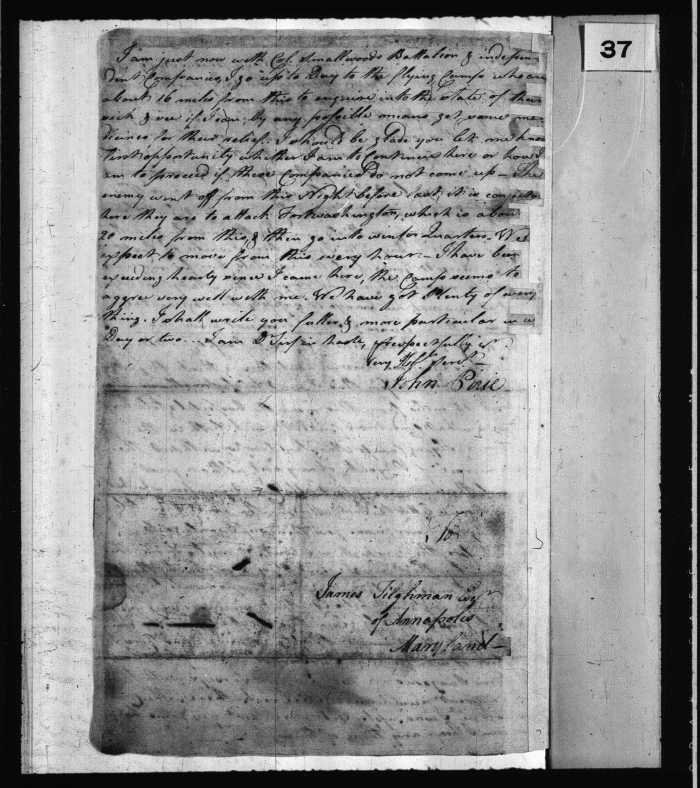 37
I am just now with Col. Smallwoods Battalion & indepen-
dent Companies, I go up to Day to the Flying Camp who are
about 16 miles from this to enquire into the State of their
sick & see if I can by any possible means get some me-
dicines for their relief. I should be glad you let me know
first opportunity whether I am to Continue here or how I
am to proceed if these Companies do not come up — The
enemy went off from this Night before last, it is
here they are to attack Fortwashington, which is about
20 miles from this, & then go into winter Quarters. We
expect to move from this every hour — I have been
exceeding hearty since I came here, the Camp seems to
aggree very well with me. We have got plenty of every
thing. I shall write you fuller & more particular in a
Day or two. I am D Sir in haste, respectfully
Very Hble Servt
John
To
James Tilghman Esqr
of Annapolis
Maryland —